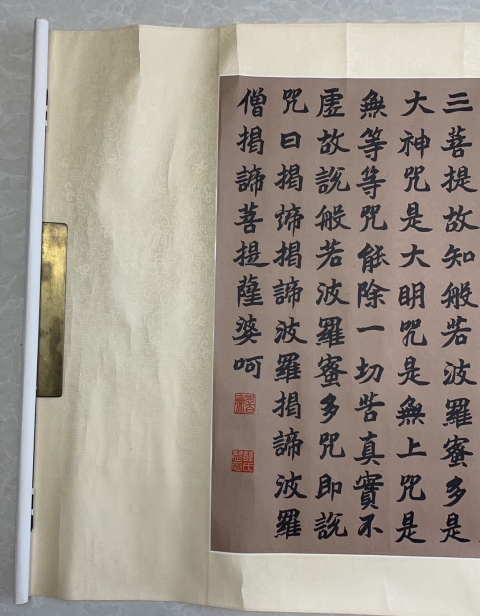 三菩提故知般若波羅蜜多是
大神咒是大明咒是無上咒是
無等等咒能除一切苦真實不
虛故說般若波羅蜜多咒即說
咒曰揭諦揭諦波羅揭諦波羅
僧揭諦菩提薩婆呵